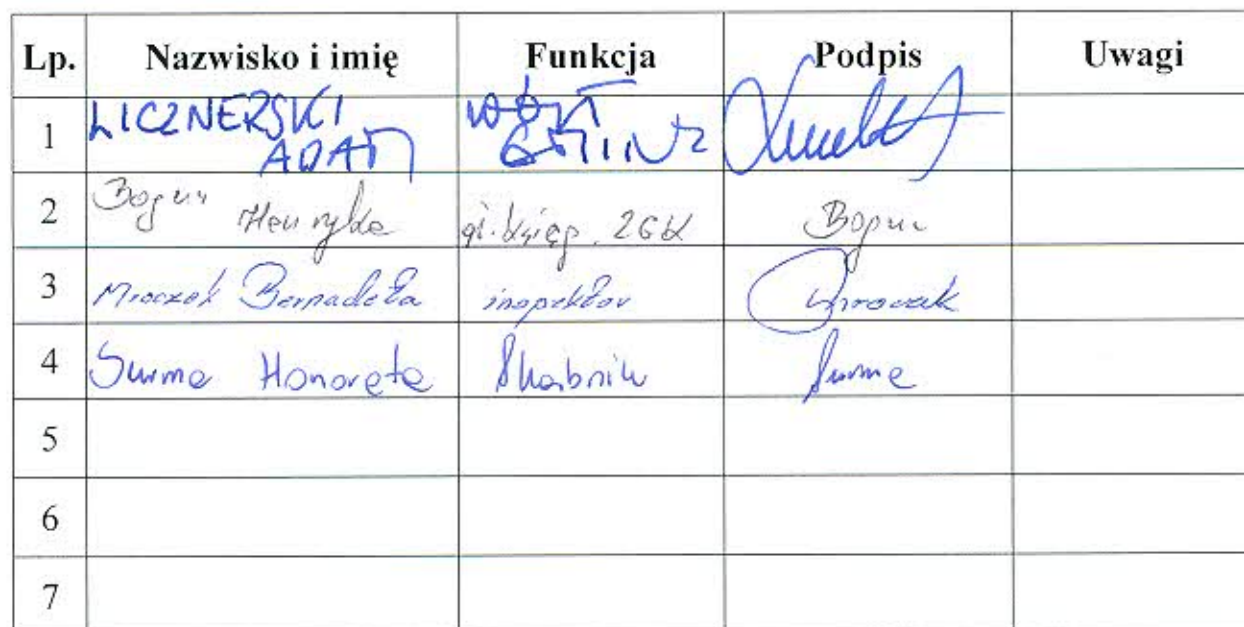 Lp. Nazwisko i imię Funkcja Podpis Uwagi
1 LICZNERSKI ADAM WÓJT GMINY
2 Bogun Henryka gł. księg. ZGK Bogun
3 Mroczek Bernadeta inspektor Mroczek
4 Surma Honorata Skarbnik Surma
5
6
7